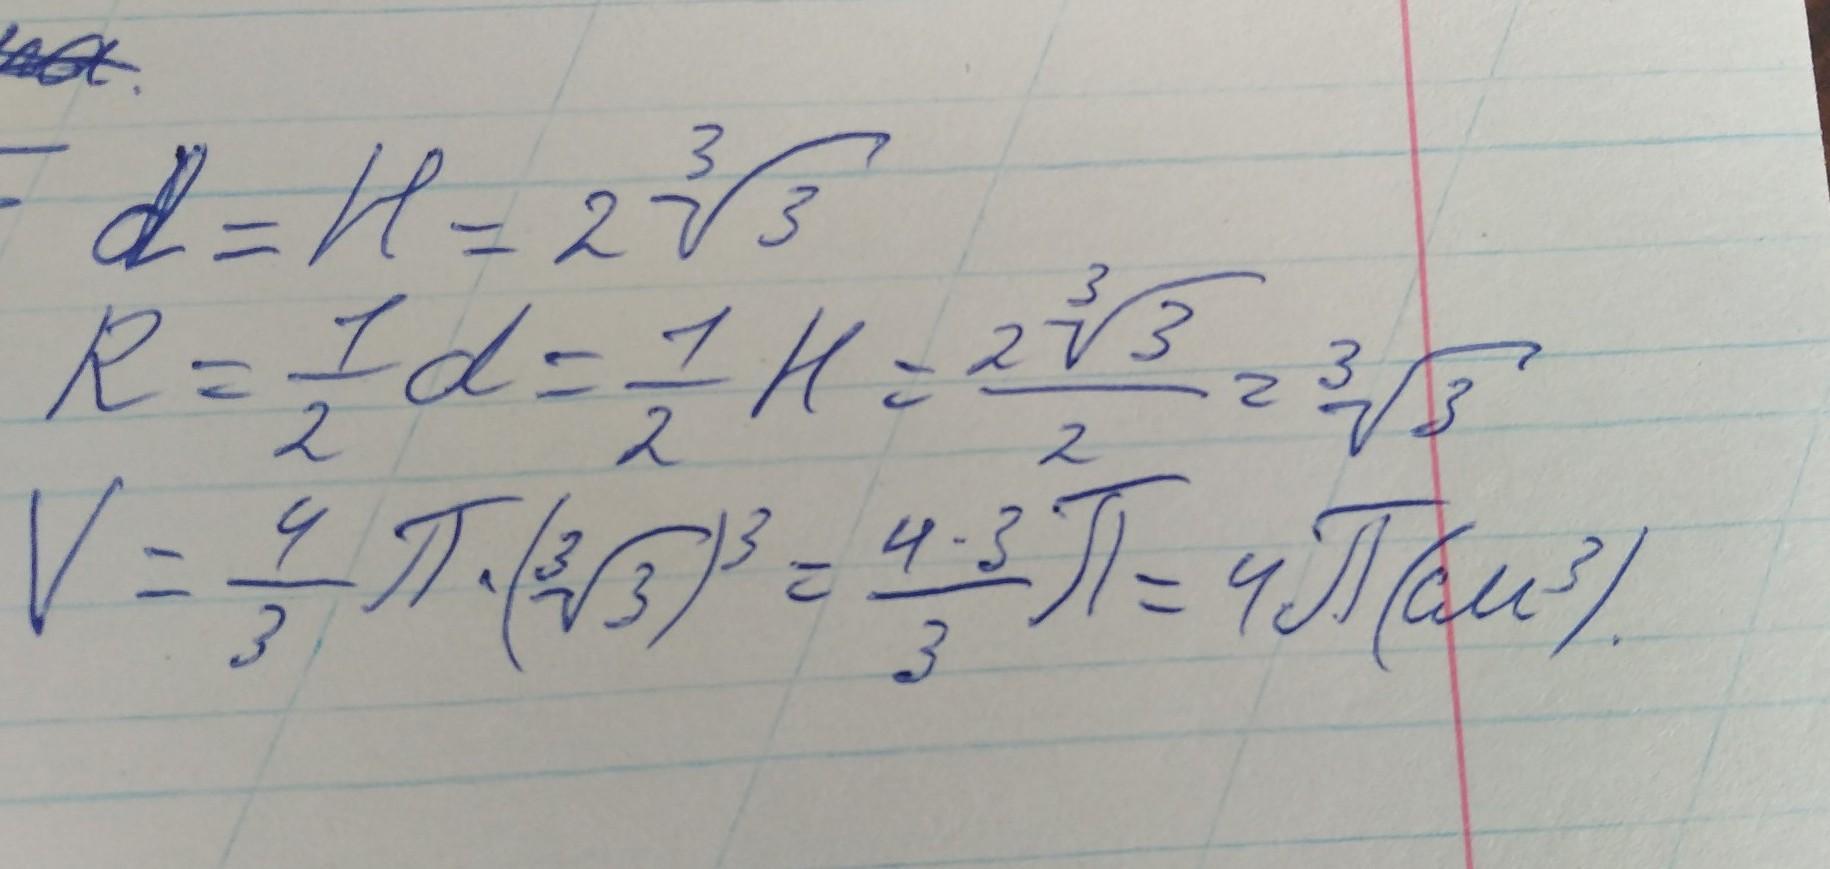 d = H = 2∛3
R = 1/2 d = 1/2 H = 2∛3/2 = ∛3
V = 4/3 π · (∛3)³ = 4·3/3 π = 4π(см³).